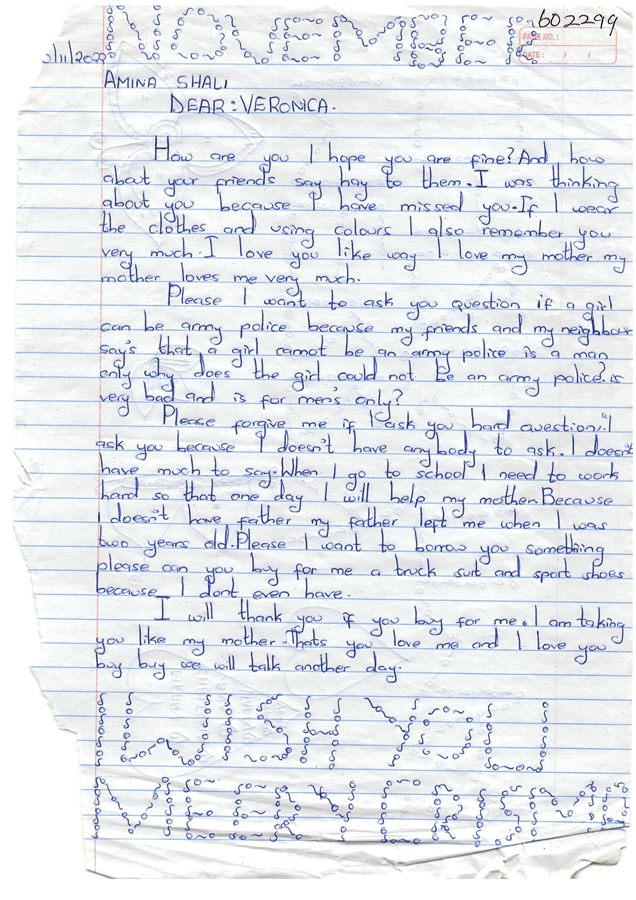 602299
PAGE NO.:
DATE: / /
/11/2022
AMINA SHALI
DEAR: VERONICA.
How are you I hope you are fine? And how
about your friends say hay to them. I was thinking
about you because I have missed you. If I wear
the clothes and using colours I also remember you
very much. I love you like way I love my mother my
mother loves me very much.
Please I want to ask you question if a girl
can be army police because my friends and my neighbour
say's that a girl cannot be an army police is a man
only why does the girl could not be an army police? is
very bad and is for men's only?
Please forgive me if I ask you hard question." I
ask you because I doesn't have anybody to ask. I doesn't
have much to say. When I go to school I need to work
hard so that one day I will help my mother. Because
I doesn't have father my father left me when I was
two years old. Please I want to borrow you something
please can you buy for me a truck suit and sport shoes
because I dont even have.
I will thank you if you buy for me. I am taking
you like my mother. Thats you love me and I love you
buy buy we will talk another day.
VERONICA